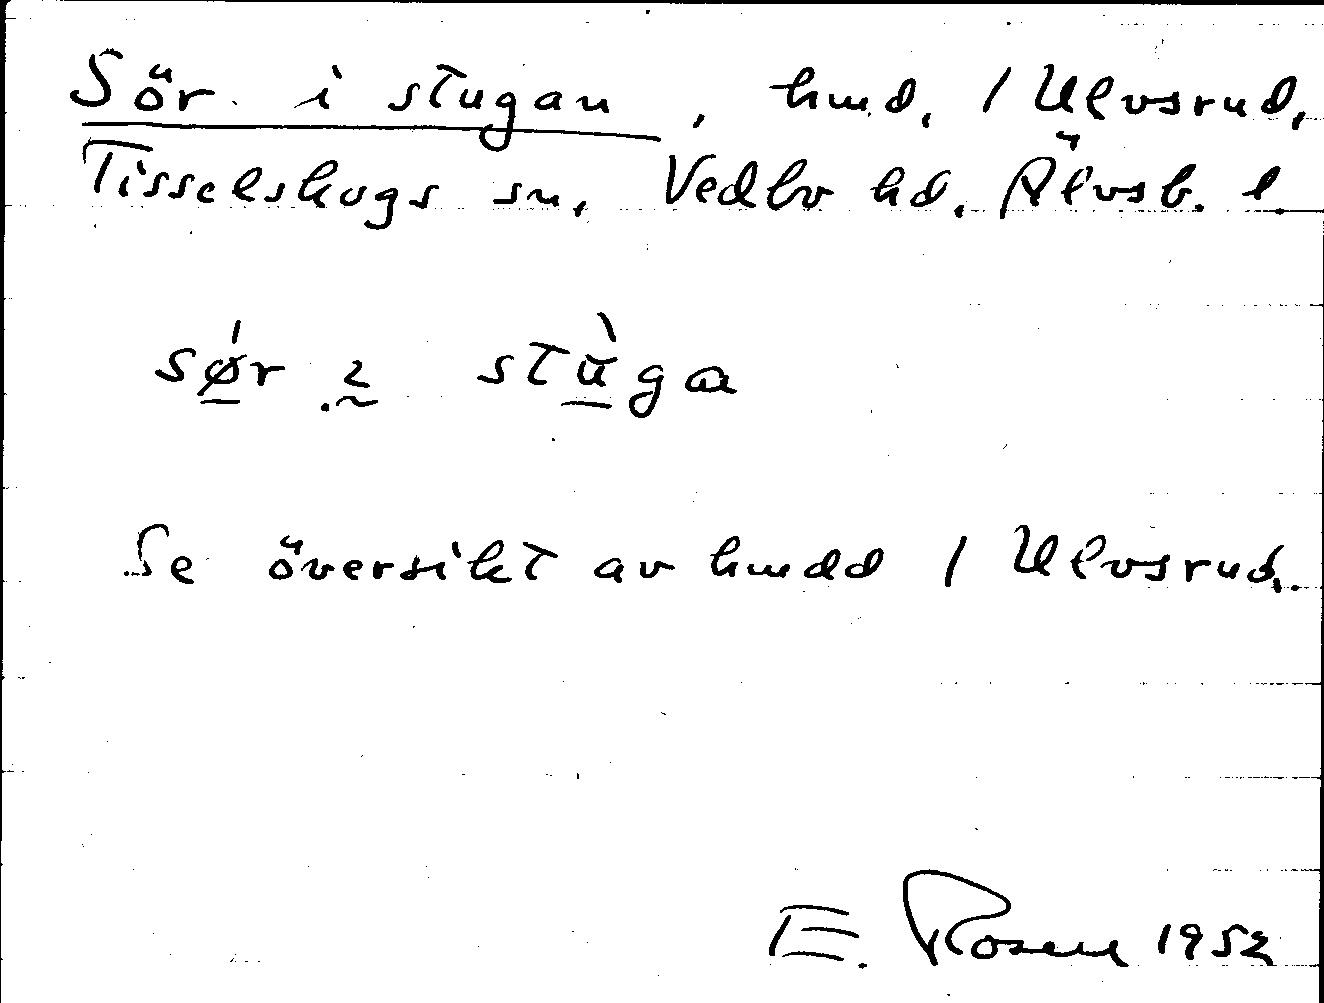 Sör i stugan, hmd. 1 Ulvsrud,
Tisselskogs sn, Vedbo hd, Älvsb. l.
sǿ̲r 2̰ stù̲ga
Se översikt av hmdd 1 Ulvsrud.
E. Rosen 1952